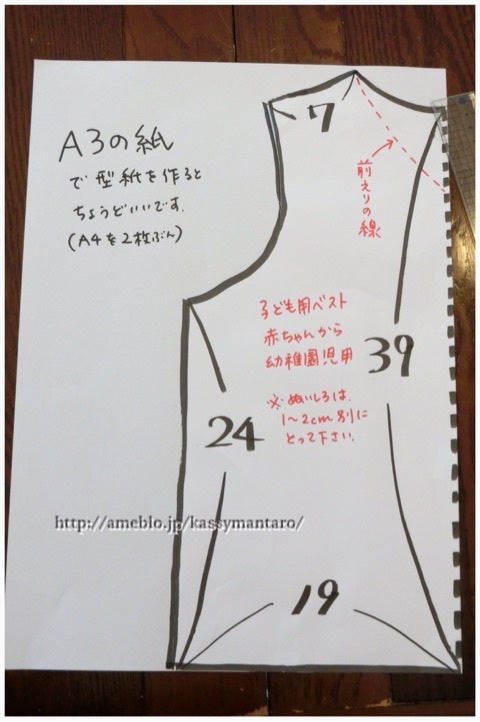 A3の紙
で型紙を作ると
ちょうどいいです.
(A4を2枚ぶん)
7
前えりの線
子ども用ベスト
赤ちゃんから
幼稚園児用
39
※ぬいしろは.
1〜2cm別に
とって下さい.
24
http://ameblo.jp/kassymantaro/
19